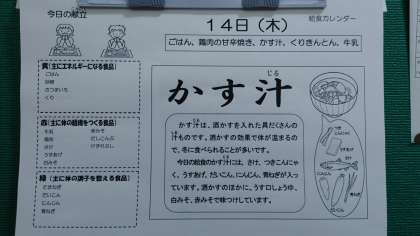 今日の献立
給食カレンダー
14日（木）
ごはん、鶏肉の甘辛焼き、かす汁、くりきんとん、牛乳
黄（主にエネルギーになる食品）
ごはん
砂糖
さつまいも
くり
赤（主に体の組織をつくる食品）
牛乳
赤みそ
鶏肉
だしこんぶ
さけ
けずりぶし
うすあげ
白みそ
緑（主に体の調子を整える食品）
だいこん
にんじん
青ねぎ
じる
かす汁
かす汁は、酒かすを入れた具だくさんの
汁ものです。酒かすの効果で体が温まるの
で、冬に食べられることが多いです。
今日の給食のかす汁には、さけ、つきこんにゃ
く、うすあげ、だいこん、にんじん、青ねぎが入
っています。酒かすのほかに、うす口しょうゆ、
白みそ、赤みそで味つけしています。